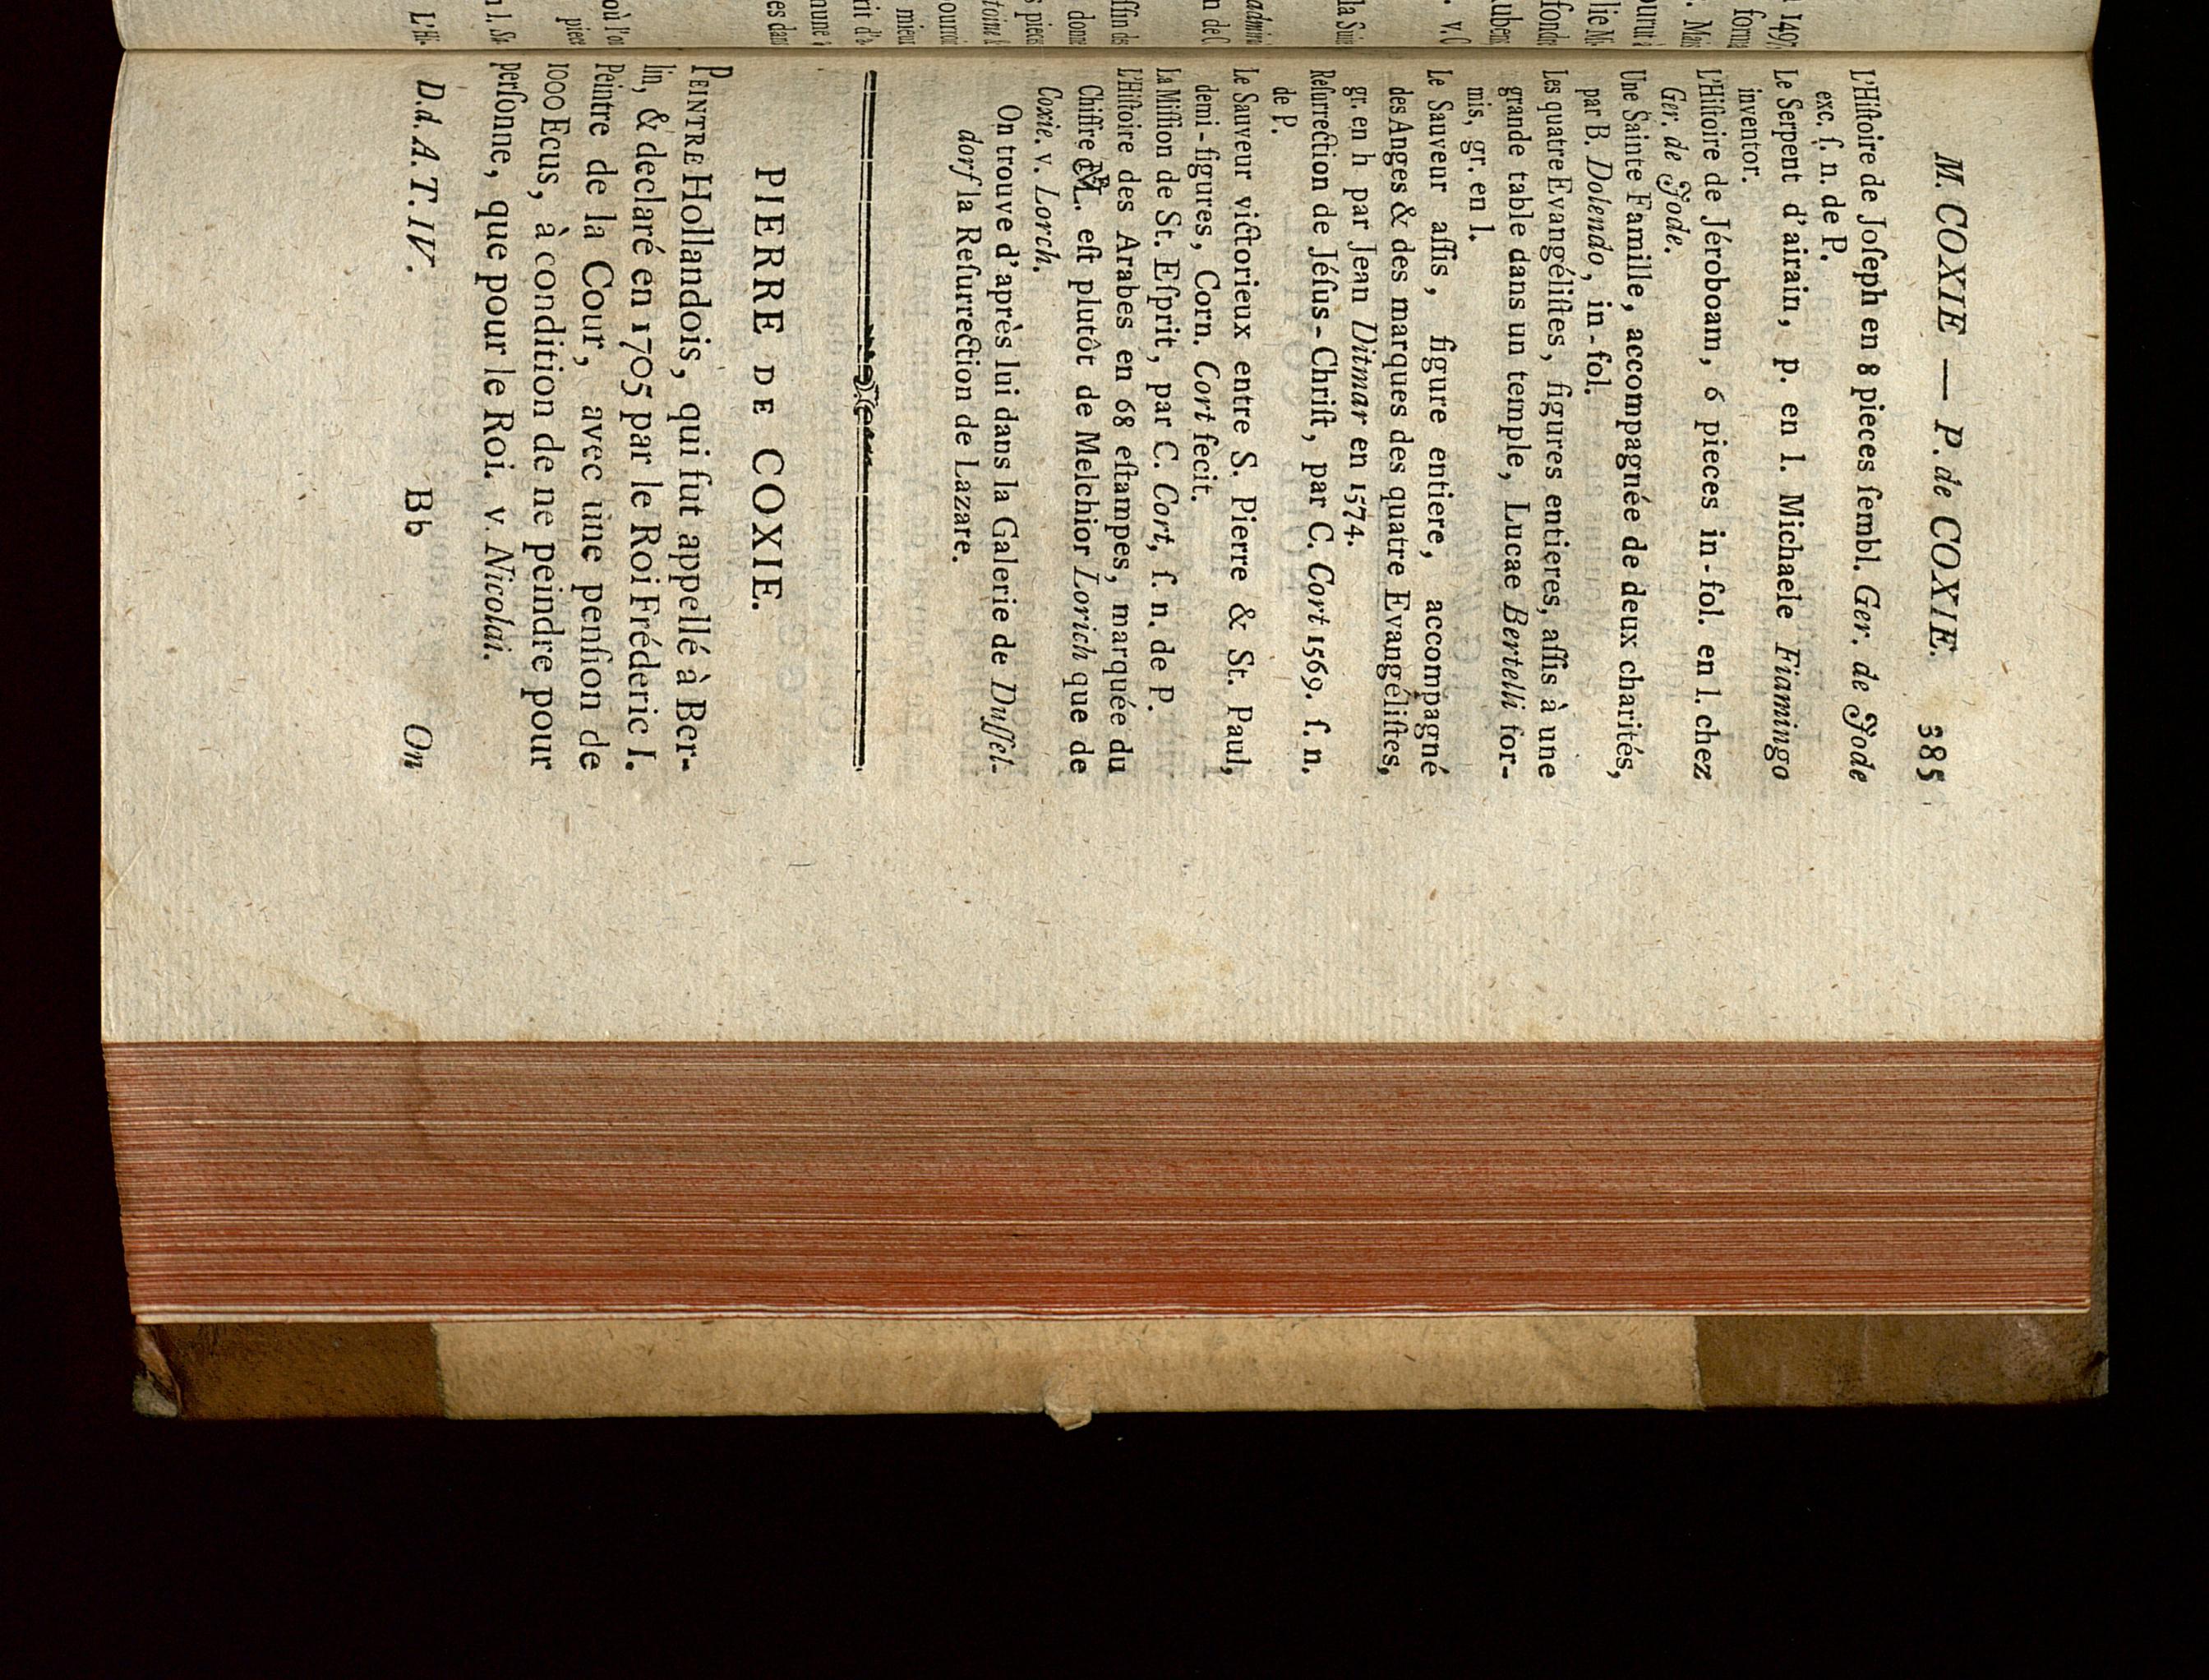 M. COXIE — P. de COXIE. 385
L'Hiſtoire de Joſeph en 8 pieces ſembl. Ger. de Jode
exc. ſ. n. de P.
Le Serpent d'airain, p. en l. Michaele Fiamingo
inventor.
L'Hiſtoire de Jéroboam, 6 pieces in-fol. en l. chez
Ger. de Jode.
Une Sainte Famille, accompagnée de deux charités,
par B. Dolendo, in-fol.
Les quatre Evangéliſtes, figures entieres, aſſis à une
grande table dans un temple, Lucae Bertelli for-
mis, gr. en l.
Le Sauveur aſſis, figure entiere, accompagné
des Anges & des marques des quatre Evangéliſtes,
gr. en h par Jean Ditmar en 1574.
Reſurrection de Jéſus-Chriſt, par C. Cort 1569. ſ. n.
de P.
Le Sauveur victorieux entre S. Pierre & St. Paul,
demi-figures, Corn. Cort fecit.
La Miſſion de St. Eſprit, par C. Cort, ſ. n. de P.
L'Hiſtoire des Arabes en 68 eſtampes, marquée du
Chiffre . eſt plutôt de Melchior Lorich que de
Coxie. v. Lorch.
On trouve d'après lui dans la Galerie de Duſſel-
dorf la Reſurrection de Lazare.
PIERRE DE COXIE.
PEINTRE Hollandois, qui fut appellé à Ber-
lin, & declaré en 1705 par le Roi Fréderic I.
Peintre de la Cour, avec une penſion de
1000 Ecus, à condition de ne peindre pour
perſonne, que pour le Roi. v. Nicolai.
D.d. A. T. IV. Bb On